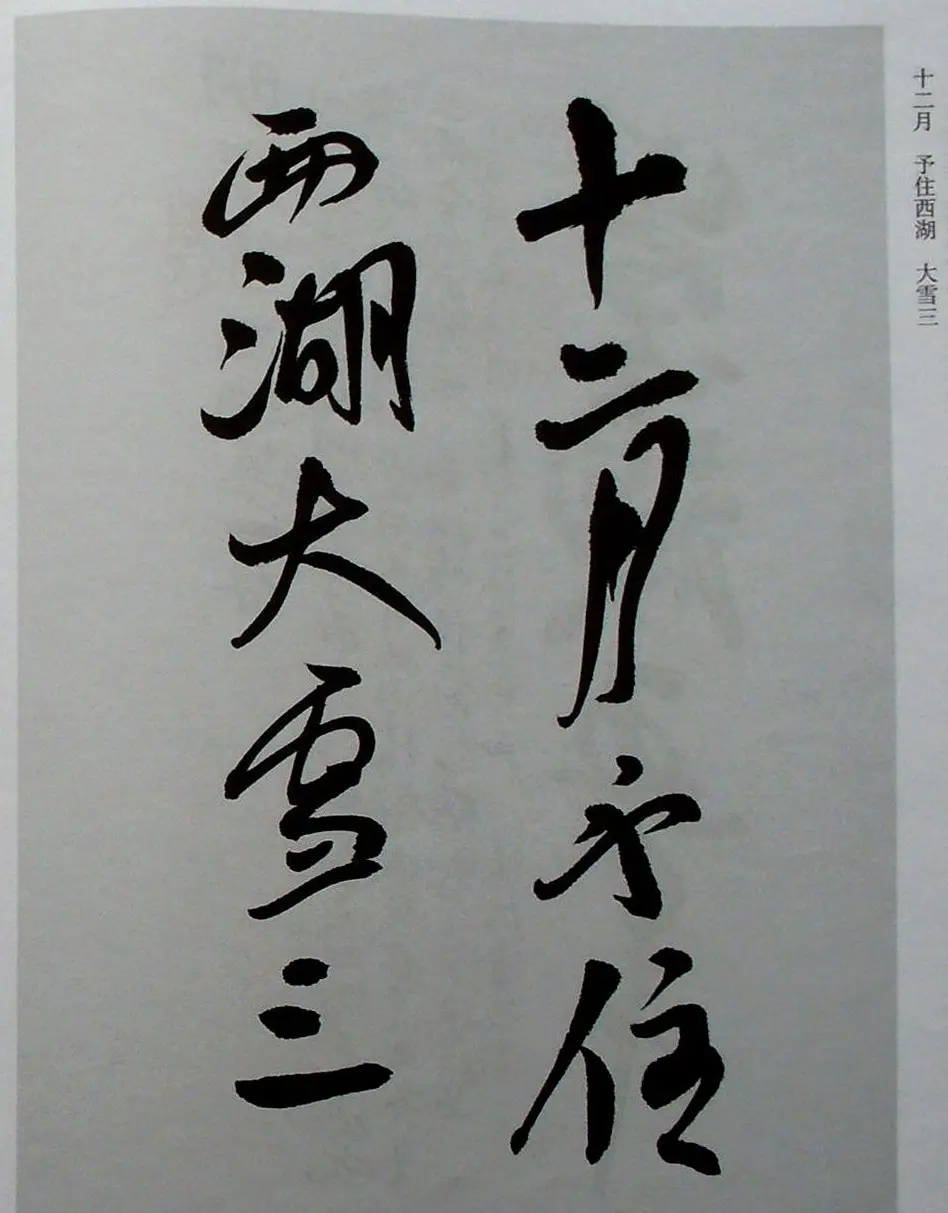 十二月 予住西湖 大雪三
十二月予住
西湖大雪三